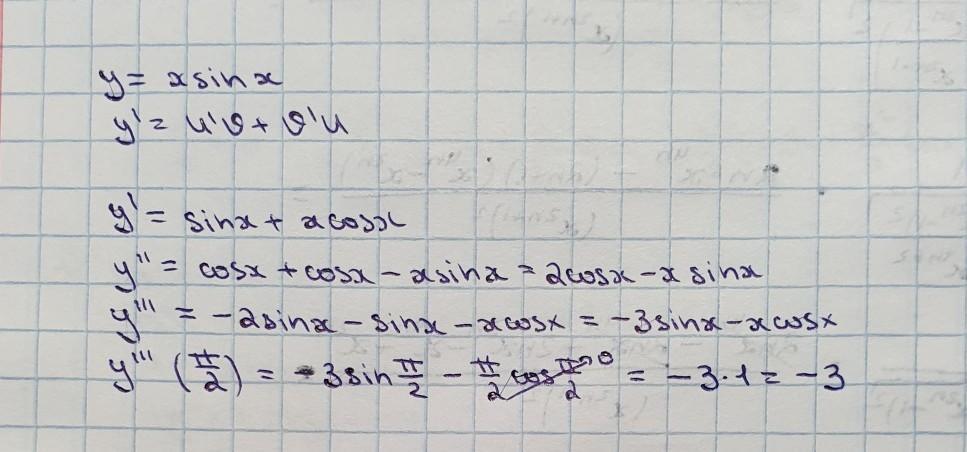 y = x sin x
y' = u'v + v'u
y' = sin x + x cos x
y'' = cos x + cos x - x sin x = 2cos x - x sin x
y''' = -2sin x - sin x - x cos x = -3sin x - x cos x
y''' (π/2) = -3 sin π/2 - π/2 cos π/2 →0 = -3·1 = -3